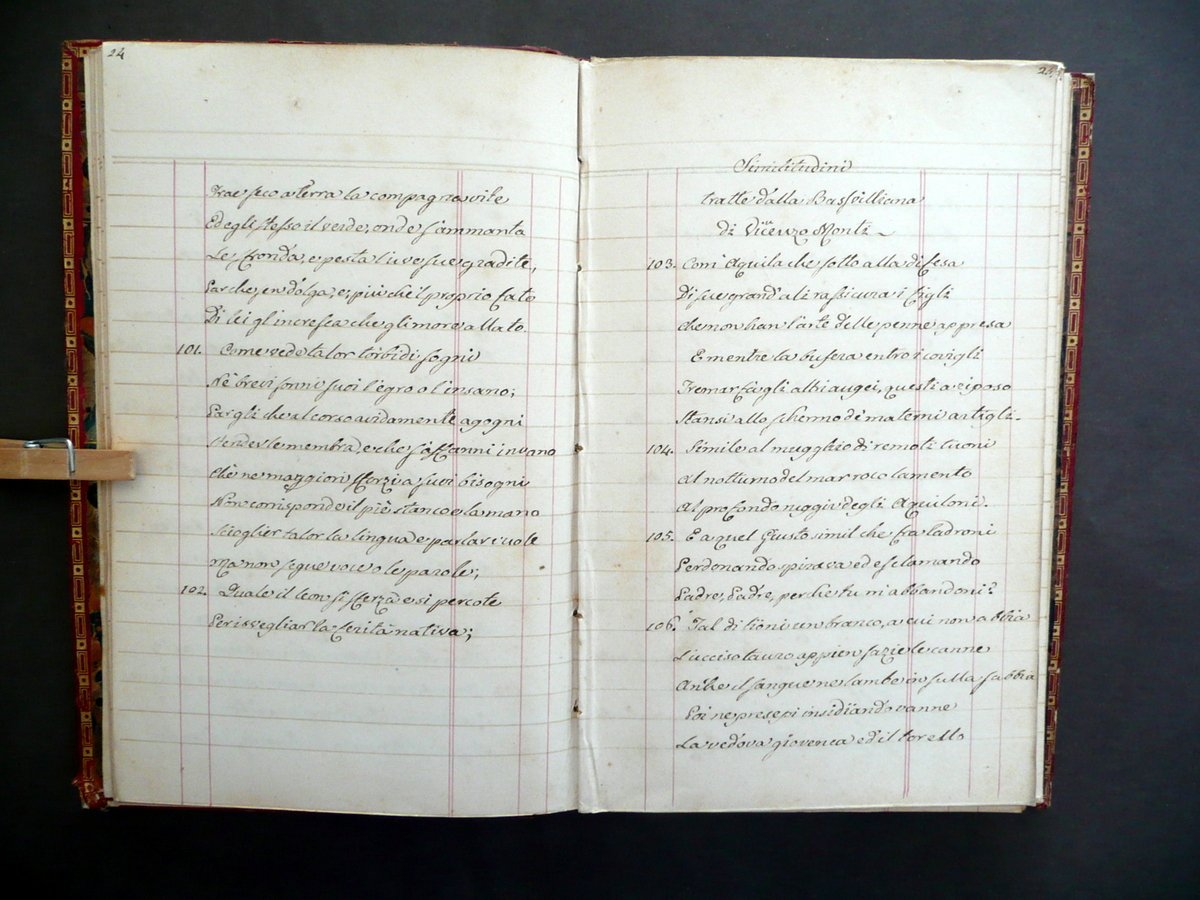 24
Trae seco a terra la compagna vite
Ed egli stesso il verde, onde s'ammanta
Le fronda, e pesta l'uve sue gradite,
Par che sen dolga, e, più che il proprio fato
Di lei gl'incresca che gli more allato
101. Come vede talor torbidi sogni
Nè brevi sonni suoi l'egro o l'insano;
Pargli che al corso avidamente agogni
Stender le membra, e che s'affanni invano
Chè ne maggiori sforzi a suoi bisogni
Non corrisponde il piè stanco e la mano
Scioglier talor la lingua e parlar vuole
Ma non segue voce o le parole;
102. Quale il leon si sferza e si percote
Per isvegliar la ferità nativa;
Similitudini
tratte dalla Bassvilliana
di Vicenzo Monti
103. Com' Aquila che sotto alla difesa
Di sue grand' ali rassicura i figli
Che non han l'arte delle penne appresa
E mentre la bufera entro i covigli
Tremar fa gli altri augei, questi a riposo
Stansi allo schermo de' materni artigli.
104. Simile al mugghio di remoti tuoni
Al notturno del mar roco lamento
Al profondo ruggir degli Aquiloni.
105. E a quel Giusto simil che fra ladroni
Perdonando spirava ed esclamando
Padre, Padre, perche tu mi abbandoni?
106. Tal di lioni un branco, a cui non abbia
L'ucciso tauro appien sazie le canne
Anche il sangue ne lambe in sulla sabbia
Poi ne presepi insidiando vanne
La vedova giovenca ed il torello